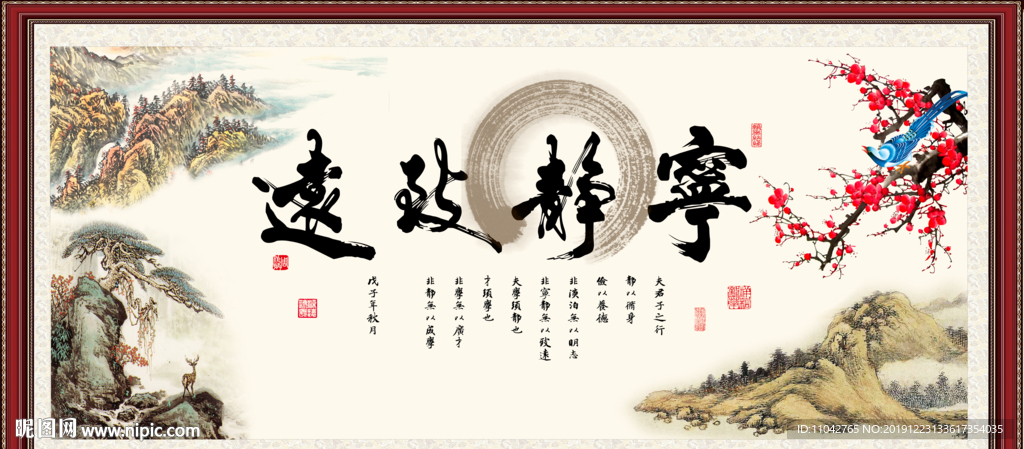 寧靜致遠
夫君子之行
靜以脩身
儉以養德
非淡泊無以明志
非寧靜無以致遠
夫學須靜也
才須學也
非學無以廣才
非靜無以成學
戊子年秋月
昵图网 www.nipic.com
ID:11042765 NO:20191223133617354035